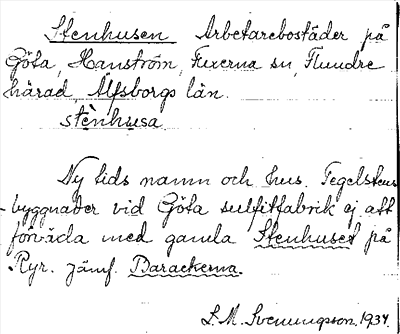 Stenhusen Arbetarebostäder på
Göta, Hanström, Fuxerna sn, Flundre
härad, Älfsborgs län.
stènhusa
Ny tids namn och hus. Tegelstens
-byggnader vid Göta sulfitfabrik ej att
förväxla med gamla Stenhuset på
Ryr. jämf. Barackerna.
S. M. Svenungsson. 1934.